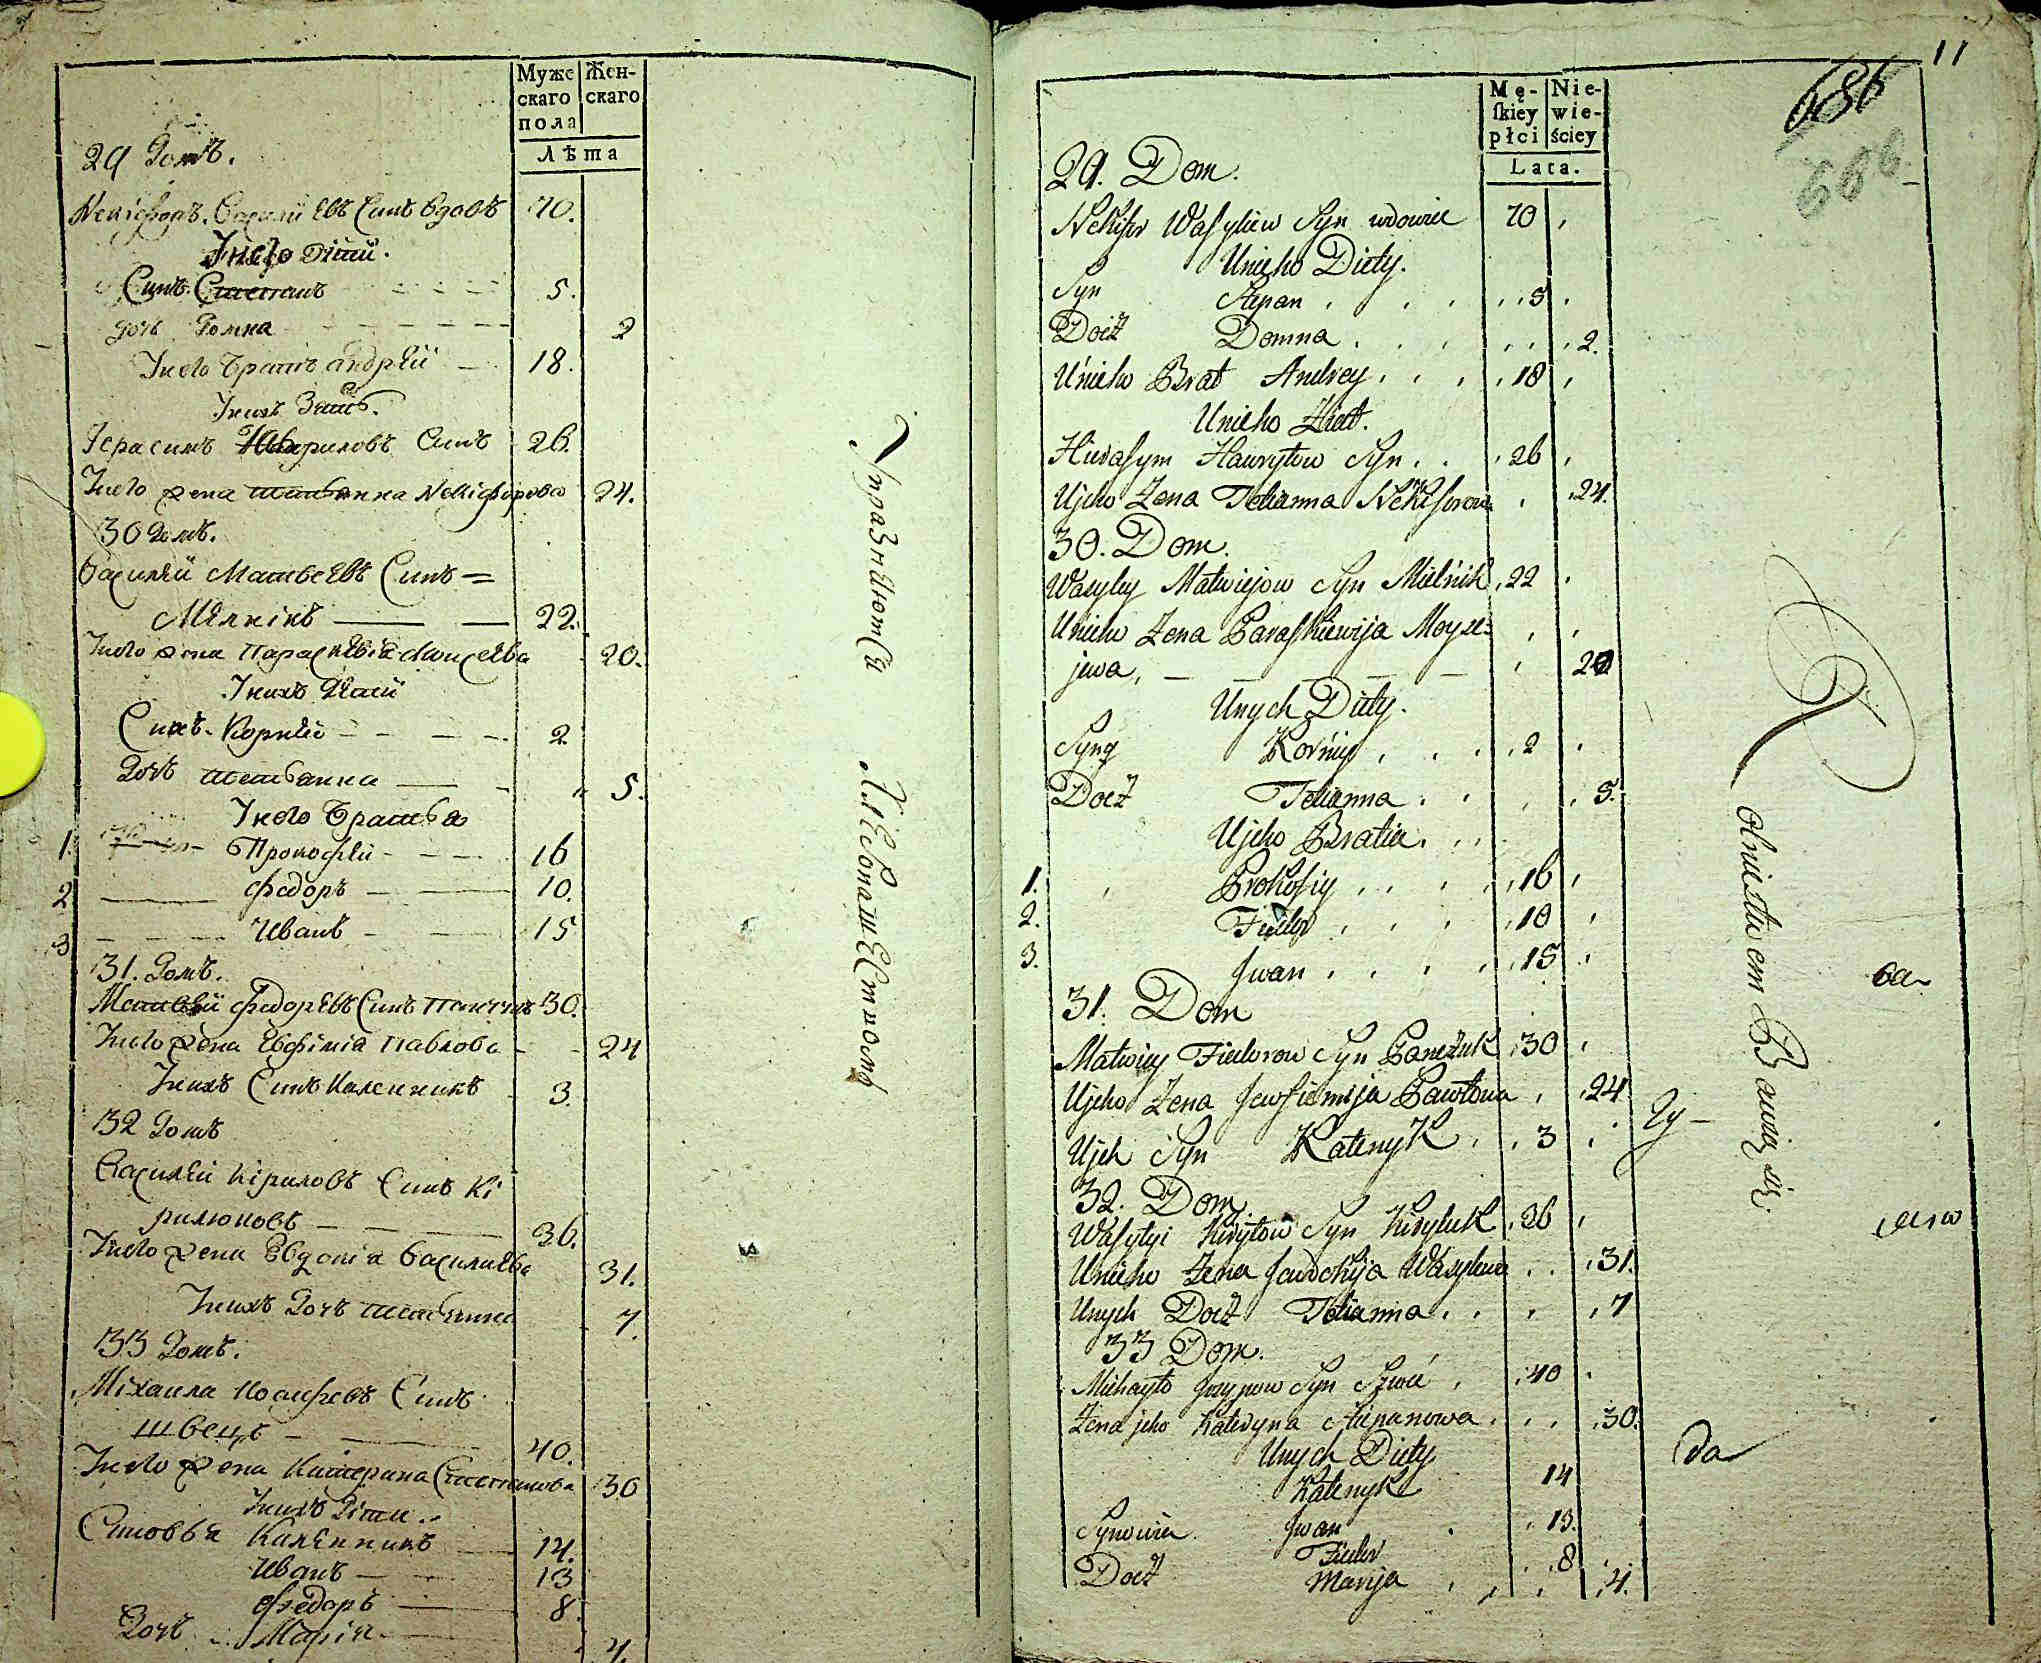 Муже
скаго
пола
Жен-
скаго
Лѣта
29 Домъ.
Некіфоръ Василіевъ Синъ вдовъ 70.
Унего дѣти.
Синъ Степанъ 5.
дочь Домна 2
Унего братъ андрѣй 18.
Унихъ Зять.
Герасимъ Гавриловъ Синъ 26.
Унего жена татіанна Некіфорова 24.
30 Домъ.
Василѣй Матвеевъ Синъ =
Мѣлнікъ 22.
Унего жена Параскѣвіа Моисеева 20.
Унихъ Дѣти
Синъ Корнѣй 2
Дочь татіанна 5.
Унего братья
1. Прокофѣй 16
2 федоръ 10.
3 Иванъ 15
31. Домъ.
Матвѣй федоревъ Синъ Панчукъ 30.
Унего жена Евфіміа павлова 24
Унихъ Синъ Каленникъ 3.
32 Домъ
Василѣй Кіриловъ Синъ Кі
рилюковъ 36.
Унего жена Евдокіа василиева 31.
Унихъ Дочь татіанна 7.
33 Домъ.
Міхаила Иосифовъ Синъ
швецъ 40.
Унего жена Катерина Степанова 30
Унихъ Дѣти
Синовья Каленникъ 14.
Иванъ 13
федоръ 8.
Дочь Маріа 4.
Упразнѣются
Хлѣбопашествомъ
11
686
686
Mę-
skiey
płci
Nie-
wie-
ściey
Lata.
29. Dom.
Nekifor Wasyliew Syn wdowiec 70
Unieho Diety.
Syn Stepan 5
Docż Domna 2.
Unieho Brat Andrey 18
Unieho Ziat.
Hierasym Hawryłow Syn 26
Ujeho Zena Tetianna Nekiforowa 24.
30. Dom.
Wasyley Matwiejow Syn Mielnik 22
Unieho Zena Paraskiewija Moyse=
jewa 20
Unych Diety.
Syny Korniy 2
Docż Tetianna 5.
Ujeho Bratia.
1. Prokofiy 16
2. Fiedor 10
3. Jwan 15
31. Dom
Matwiey Fiedorow Syn Panczuk 30
Ujeho Zena Jewfiemija Pawłowa 24
Ujeh Syn Kalenyk 3
32. Dom.
Wasylyi Kiryłow Syn Kiryluk 36
Unieho Zena Jewdokija Wasylewa 31.
Unych Docż Tetianna 7
33 Dom.
Michayło Jozypow Syn Szwec 40
Zena jeho Kateryna Stepanowa 30.
Unych Diety
Kalenyk 14
Synowia Jwan 13.
Fiedor 8
Docż Marija 4.
Rolnictwem Bawią się.